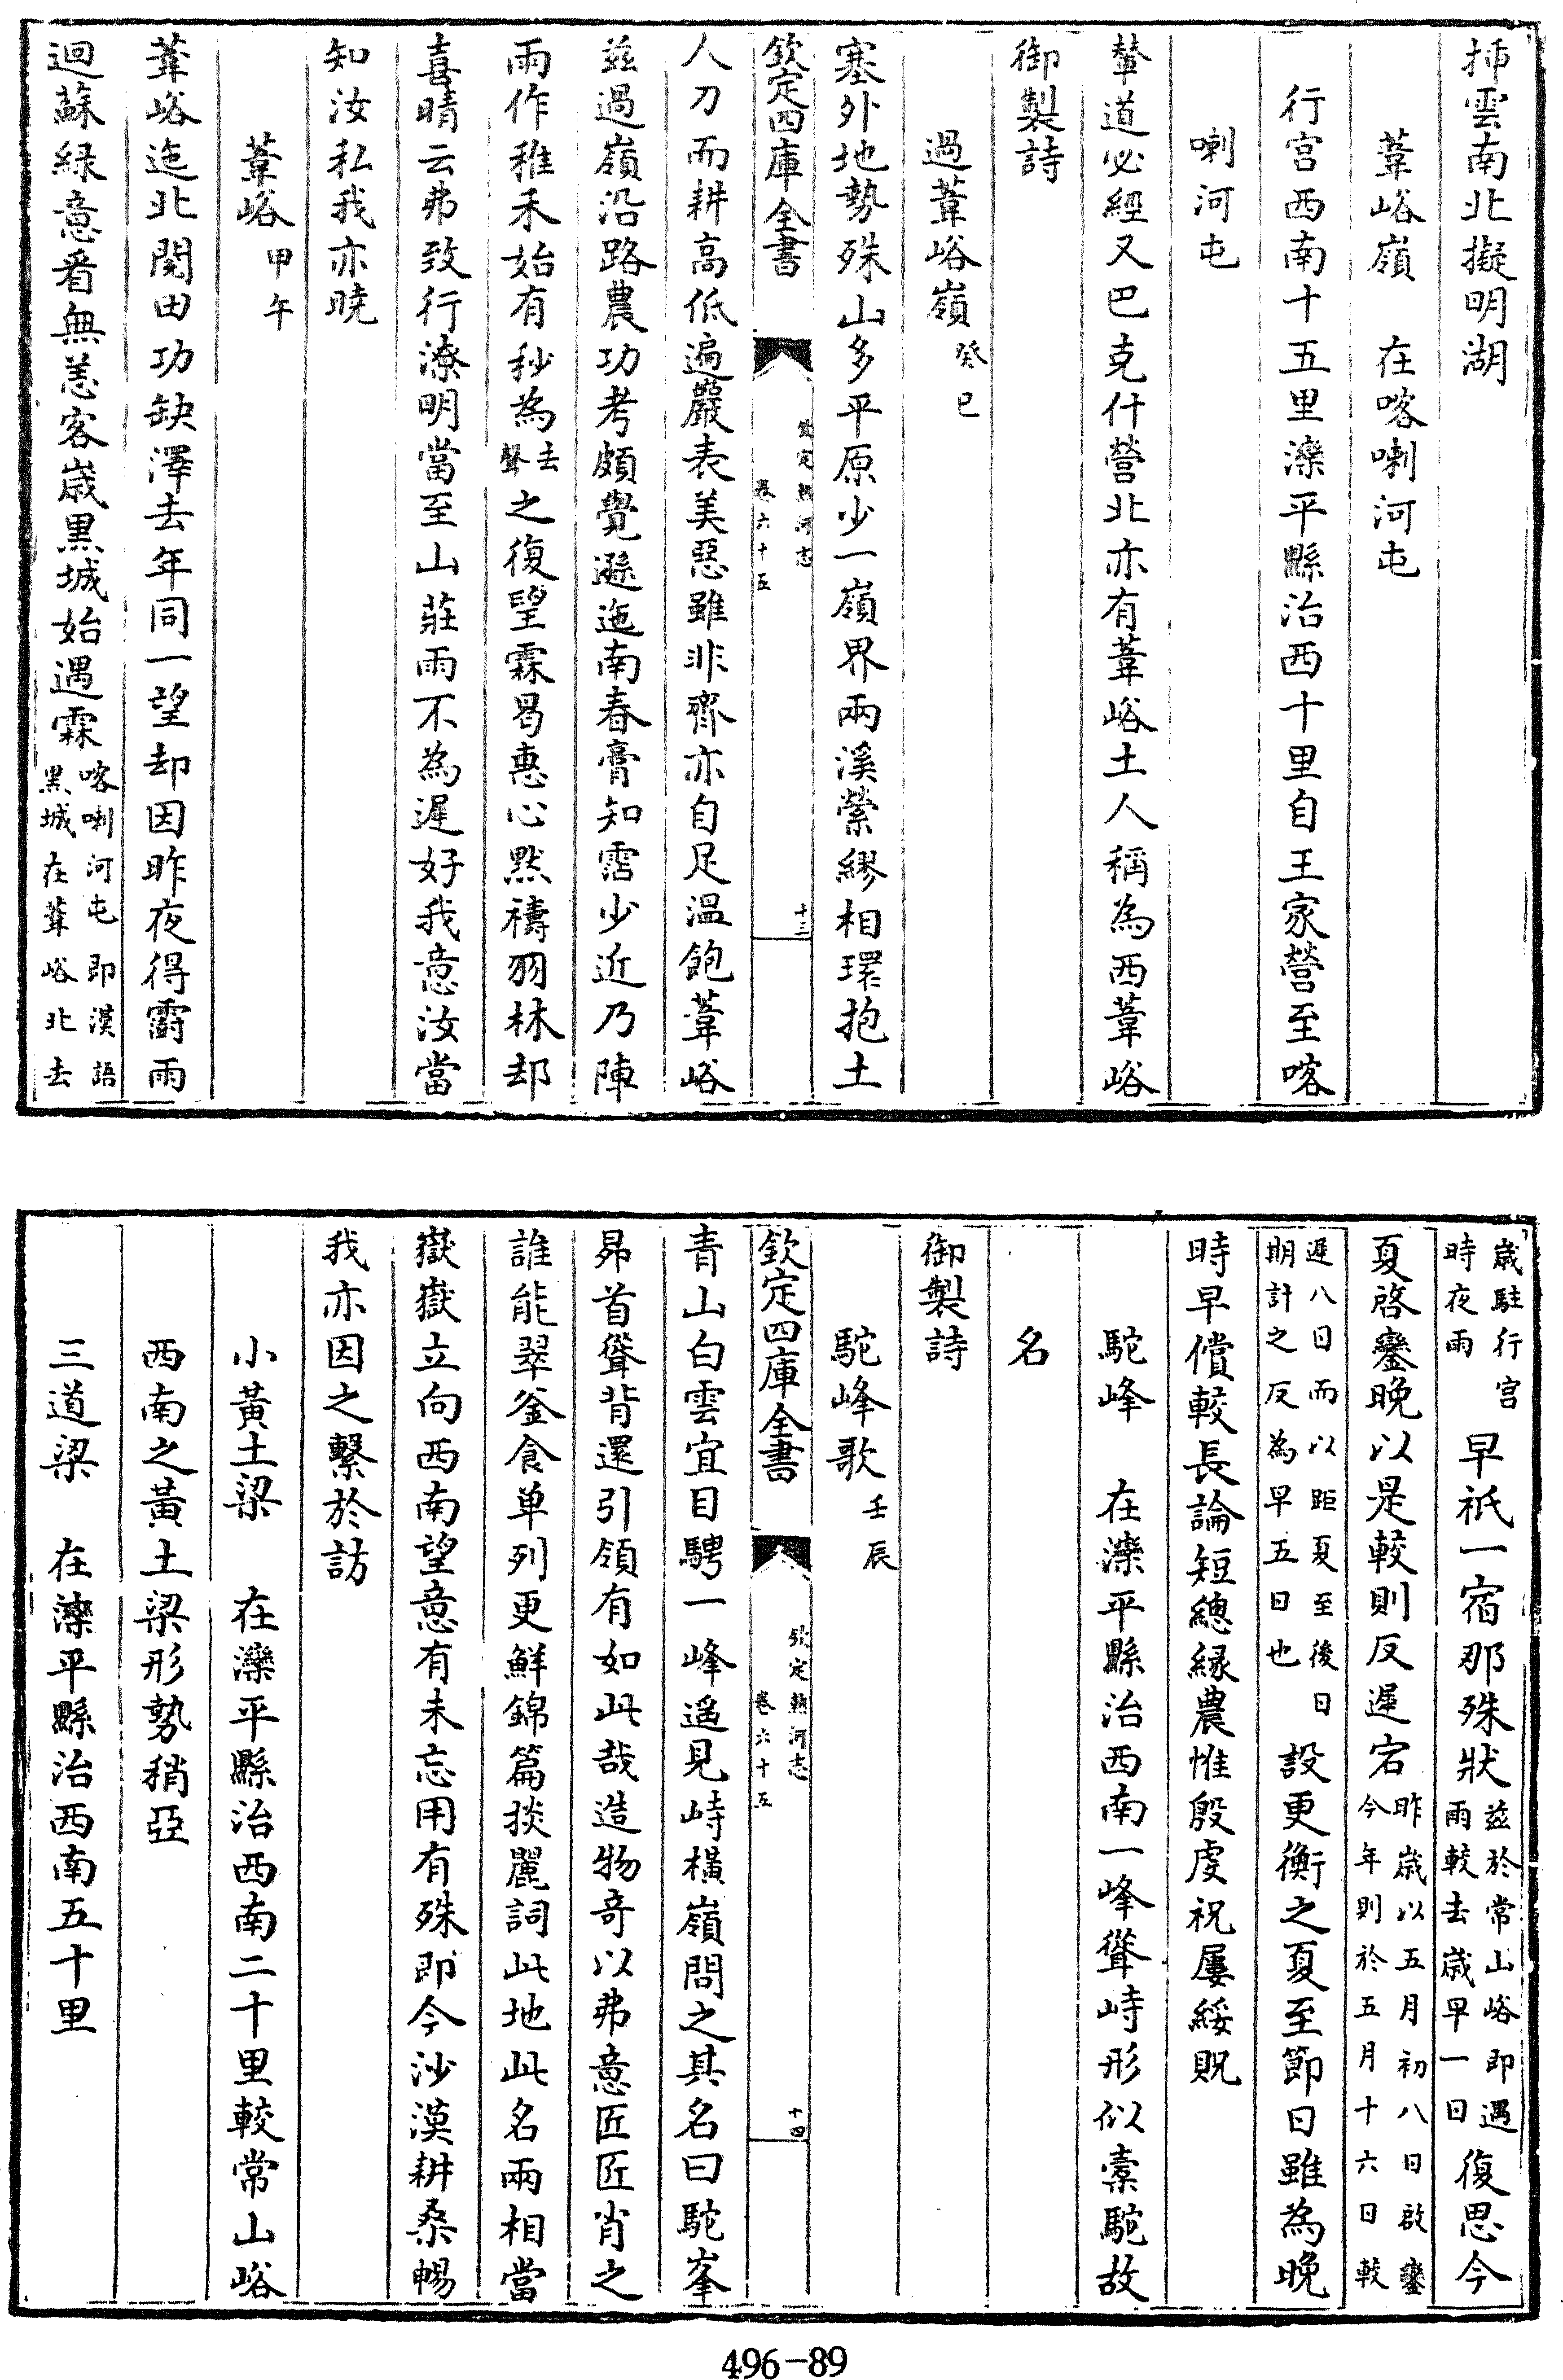 挿雲南北擬明湖
葦峪嶺　在喀喇河屯
行宫西南十五里灤平縣治西十里自王家營至喀
喇河屯
輦道必經又巴克什營北亦有葦峪土人稱為西葦峪
御製詩
過葦峪嶺癸巳
塞外地勢殊山多平原少一嶺界兩溪縈繆相環抱土
欽定四庫全書
欽定熱河志
卷六十五
十三
人刀而耕高低遍巖表美惡雖非齊亦自足温飽葦峪
兹過嶺沿路農功考頗覺遜迤南春膏知霑少近乃陣
雨作稚禾始有秒為去聲之復望霖曷惠心黙禱羽林却
喜晴云弗致行潦明當至山莊雨不為遲好我意汝當
知汝私我亦曉
葦峪甲午
葦峪迤北閲田功缺澤去年同一望却因昨夜得霨雨
迴蘇緑意看無恙客嵗黒城始遇霖喀喇河屯即漢語黒城在葦峪北去
嵗駐行宫時夜雨早祇一宿那殊狀兹於常山峪即遇雨較去嵗早一日復思今
夏啓鑾晚以是較則反遲宕昨嵗以五月初八日啟鑾今年則於五月十六日較
遲八日而以距夏至後日期計之反為早五日也設更衡之夏至節日雖為晚
時早償較長論短總緣農惟殷虔祝屢綏貺
駝峰　在灤平縣治西南一峰聳峙形似槖駝故
名
御製詩
駝峰歌壬辰
欽定四庫全書
欽定熱河志
卷六十五
十四
青山白雲宜目騁一峰遥見峙橫嶺問之其名曰駝峯
昂首聳背還引領有如此哉造物竒以弗意匠匠肖之
誰能翠釜食单列更鮮錦篇掞麗詞此地此名兩相當
嶽嶽立向西南望意有未忘用有殊即今沙漠耕桑暢
我亦因之繫於訪
小黄土梁　在灤平縣治西南二十里較常山峪
西南之黄土梁形勢稍亞
三道梁　在灤平縣治西南五十里
496-89